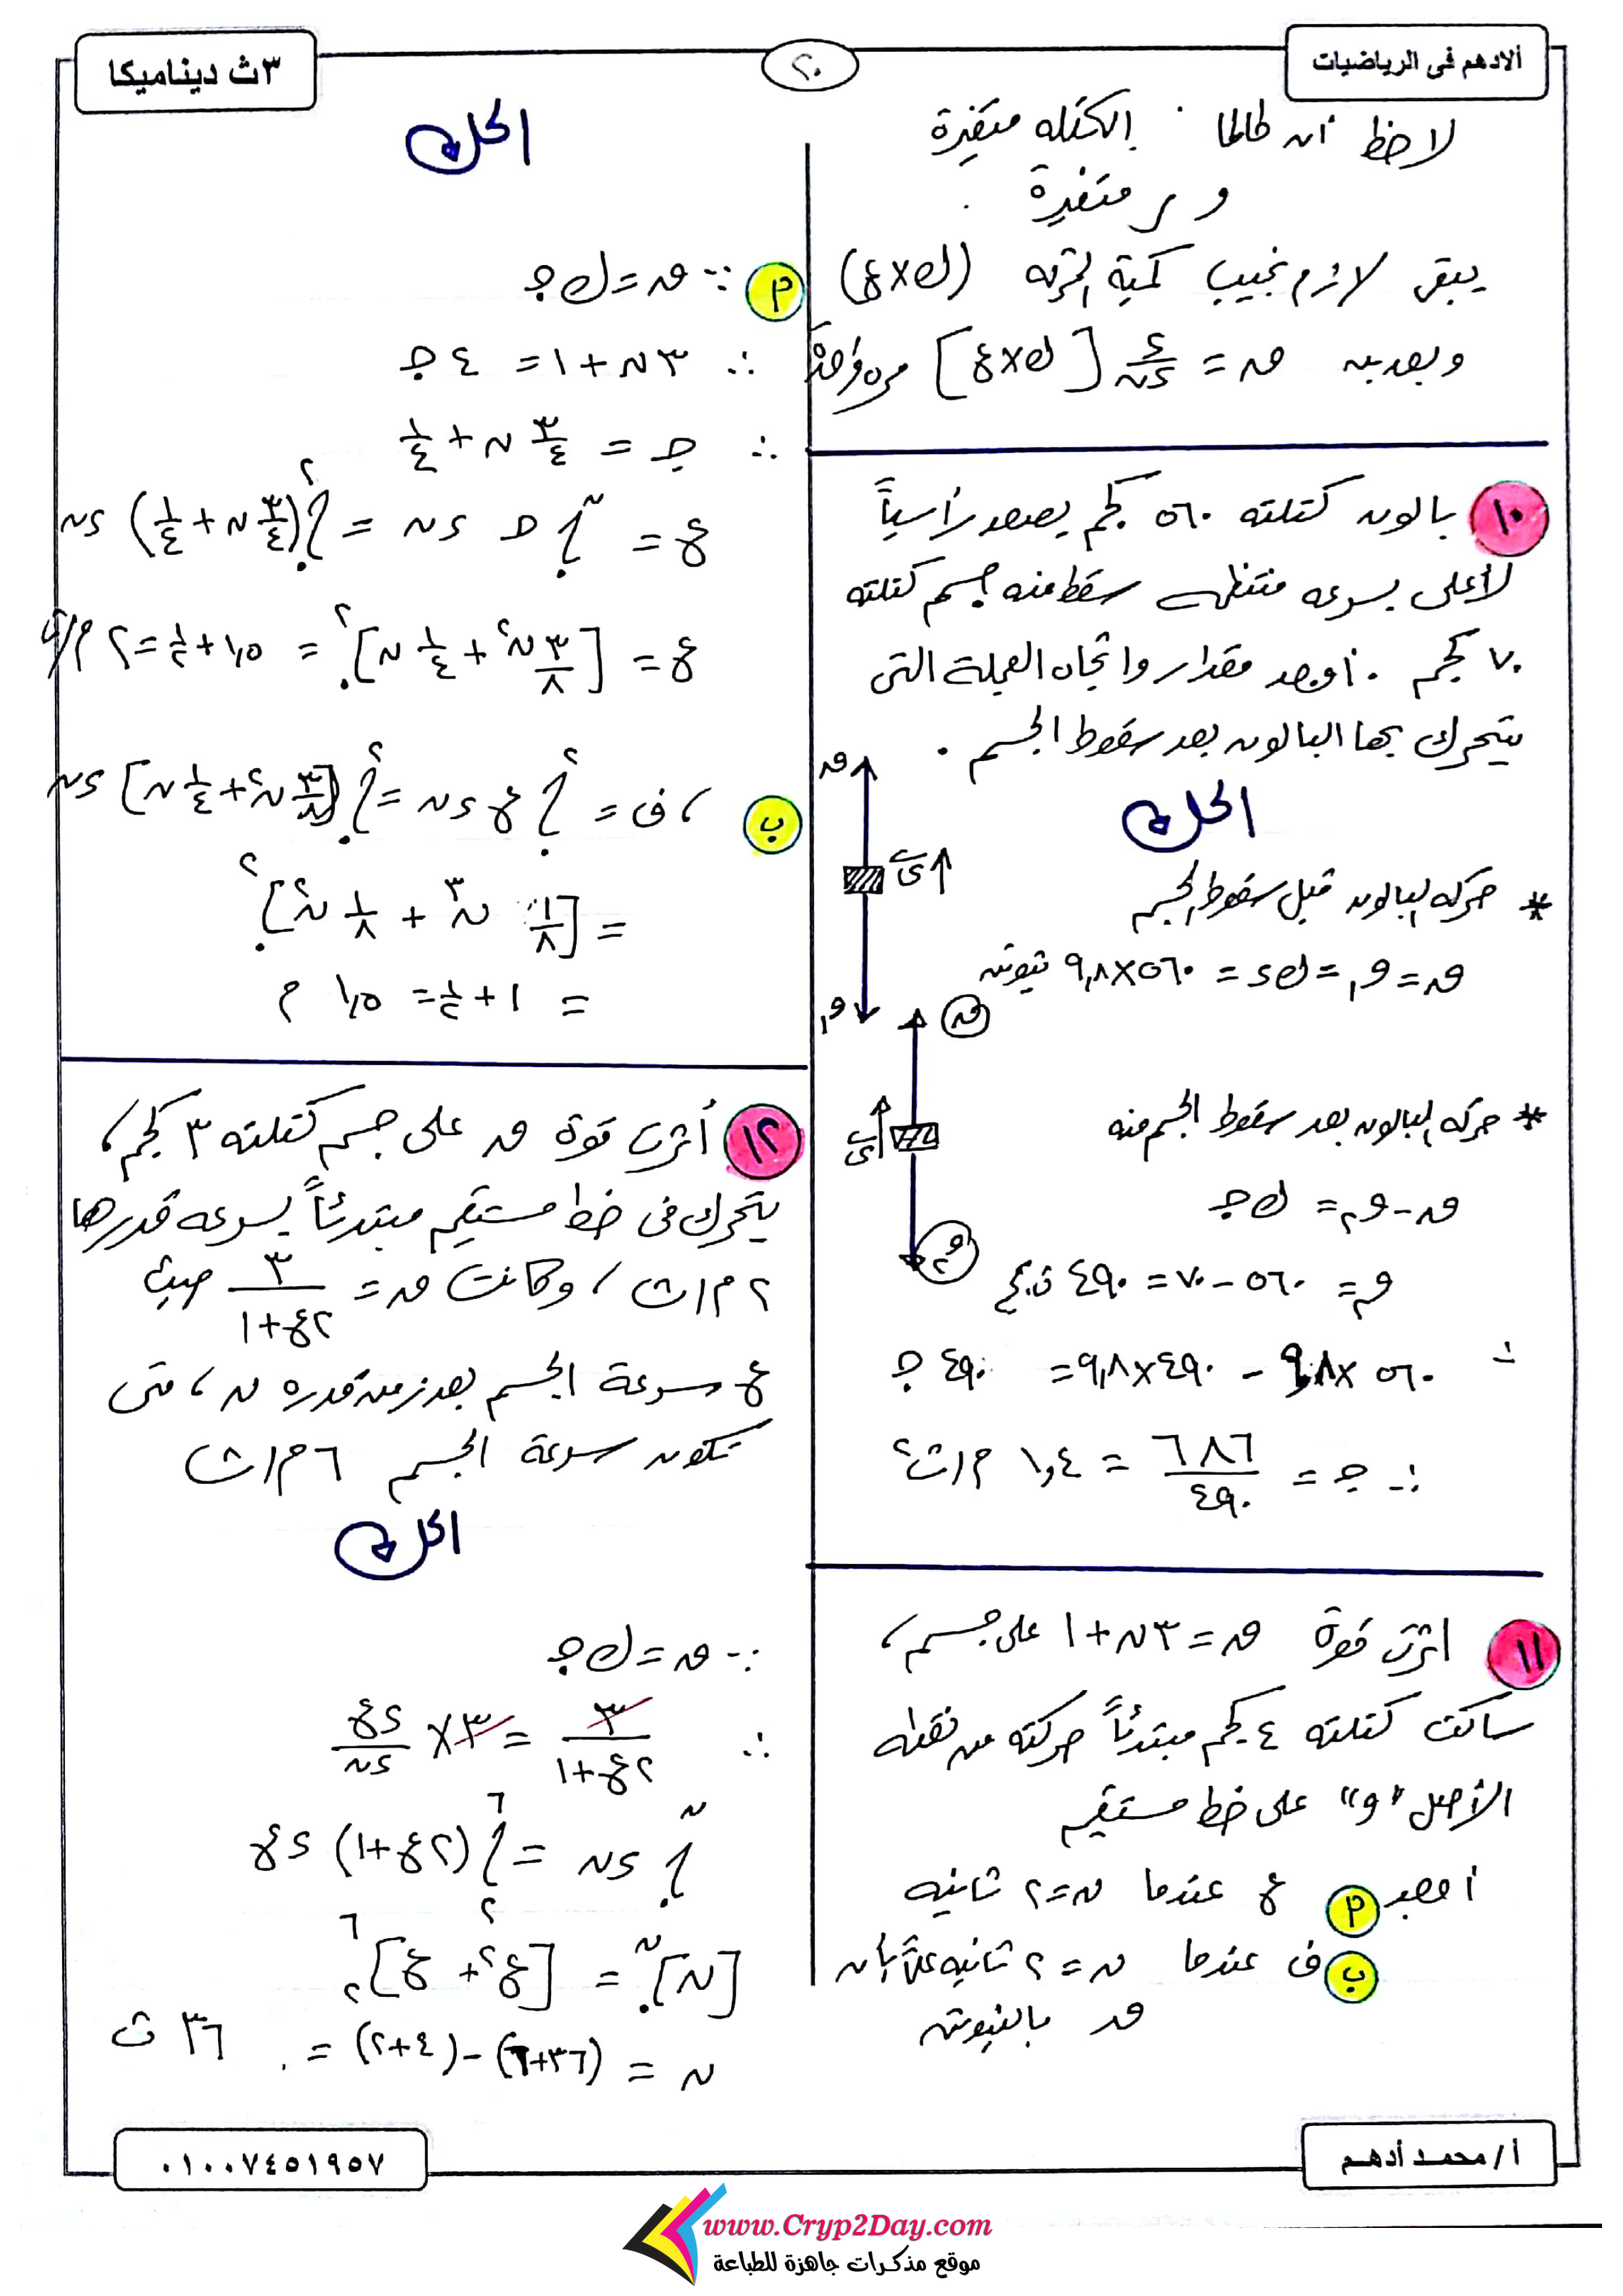 ألادهم فى الرياضيات
٢٠
٣ث ديناميكا
لاحظ أن طالما الكتله متغيرة
و ر متغيرة
يبقى لازم نجيب كمية الحركه (ك×ع)
وبعدين ق = د/دن [ك×ع] مره واحدة
١٠ بالون كتلته ٥٦٠ كجم يصعد رأسياً
لأعلى بسرعه منتظمه سقط منه جسم كتلته
٧٠ كجم . أوجد مقدار واتجاه العجلة التى
يتحرك بها البالون بعد سقوط الجسم .
الحل
* حركه البالون قبل سقوط الجسم
ق = و١ = ك د = ٥٦٠×٩,٨ نيوتن
ق
ى
و١
* حركه البالون بعد سقوط الجسم منه
ق
ى
و٢
ق - و٢ = ك جـ
و٢ = ٥٦٠ - ٧٠ = ٤٩٠ ث.كجم
∴ ٥٦٠×٩,٨ - ٤٩٠×٩,٨ = ٤٩٠ جـ
∴ جـ = ٦٨٦/٤٩٠ = ١,٤ م/ث٢
١١ اثرت قوة ق = ٣ن+١ على جسم ،
ساكن كتلته ٤ كجم مبتدئاً حركته من نقطه
الأصل "و" على خط مستقيم
أوجد أ ع عندما ن = ٢ ثانيه
ب ف عندما ن = ٢ ثانيه علماً بأن
ق بالنيوتن
الحل
أ ∵ ق = ك جـ
∴ ٣ن+١ = ٤ جـ
∴ جـ = ٣/٤ ن + ١/٤
ع = ∫٠^ن جـ دن = ∫٠^٢ (٣/٤ ن + ١/٤) دن
ع = [٣/٨ ن٢ + ١/٤ ن]٠^٢ = ١,٥ + ١/٢ = ٢ م/ث
ب ، ف = ∫٠^٢ ع دن = ∫٠^٢ [٣/٨ ن٢ + ١/٤ ن] دن
= [١/٨ ن٣ + ١/٨ ن٢]٠^٢
= ١ + ١/٢ = ١,٥ م
١٢ أثرت قوة ق على جسم كتلته ٣ كجم ،
يتحرك فى خط مستقيم مبتدئاً بسرعه قدرها
٢ م/ث ، وكانت ق = ٣/(٢ع+١) حيث
ع سرعة الجسم بعد زمن قدره ن ، متى
تكون سرعة الجسم ٦ م/ث
الحل
∵ ق = ك جـ
∴ ٣/(٢ع+١) = ٣ × دع/دن
∫٠^ن دن = ∫٢^٦ (٢ع+١) دع
[ن]٠^ن = [ع٢ + ع]٢^٦
ن = (٣٦+٦) - (٤+٢) = ٣٦ ث
أ/ محمد أدهم
٠١٠٠٧٤٥١٩٥٧
www.Cryp2Day.com
موقع مذكرات جاهزة للطباعة